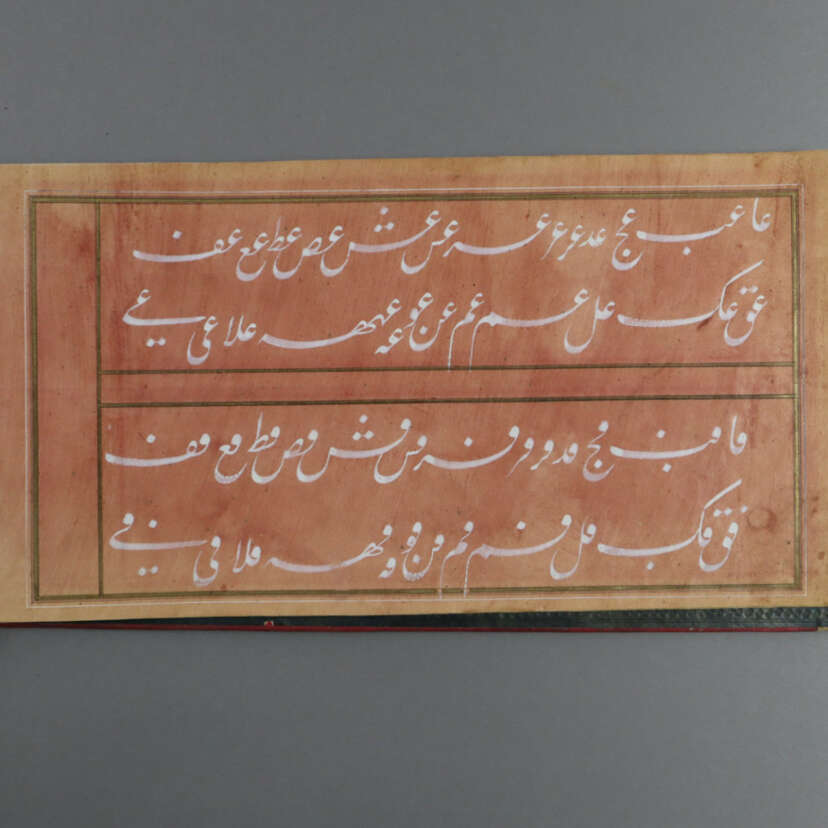 عا عب عج عد عر عر عسر عس عش عص عط عع عف
عق عک عل عسم عم عن عو عه عهه علا عی عے
فا فب فج فد فر فر فسر فس فش فص فط فع فف
فق فک فل فسم فم فن فو فه فهه فلا فی فے